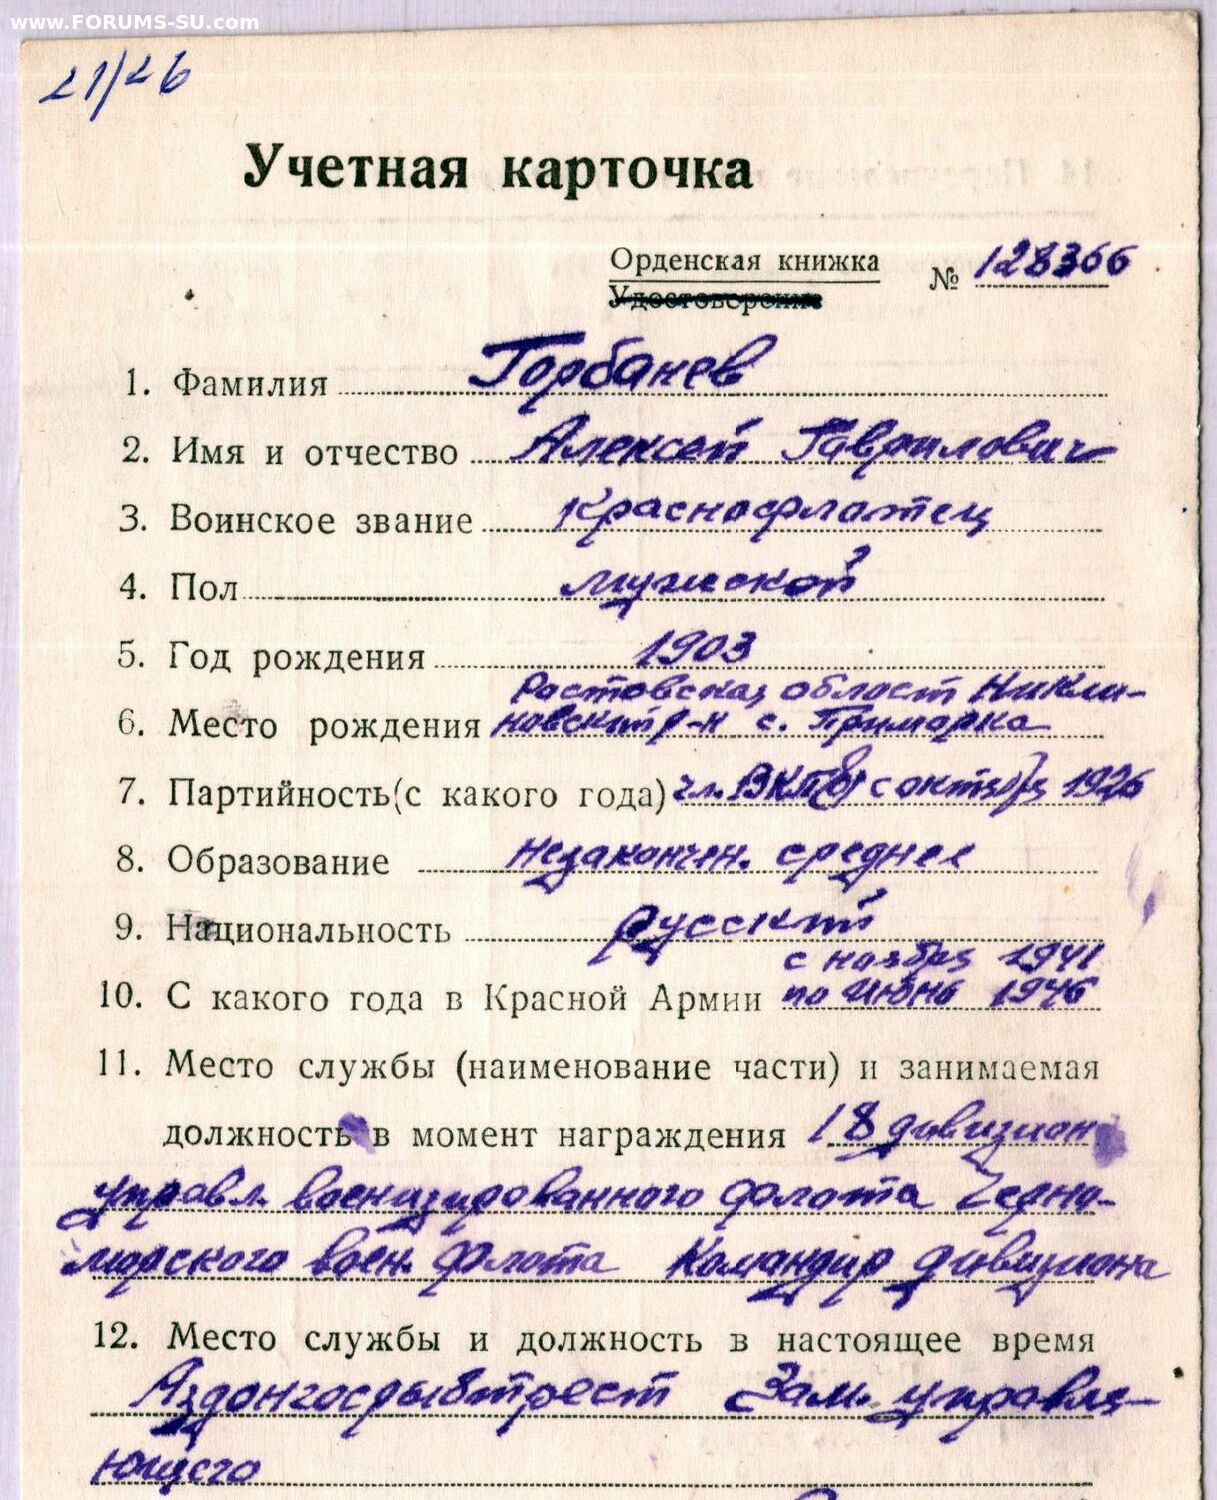 www.FORUMS-SU.com
21/26
Учетная карточка
Орденская книжка
Удостоверение
№ 128366
1. Фамилия Горбанев
2. Имя и отчество Алексей Гаврилович
3. Воинское звание Краснофлотец
4. Пол мужской
5. Год рождения 1903
Ростовская област Некли-
6. Место рождения новский р-н с. Приморка
7. Партийность (с какого года) чл. ВКП(б) с октября 1926
8. Образование незакончен. среднее
9. Национальность русский
с ноября 1941
10. С какого года в Красной Армии по июнь 1946
11. Место службы (наименование части) и занимаемая
должность в момент награждения 18 дивизион
управл. военизированного флота Черно-
морского воен. флота Командир дивизиона
12. Место службы и должность в настоящее время
Аздонгосрыбтрест Зам. управля-
ющего